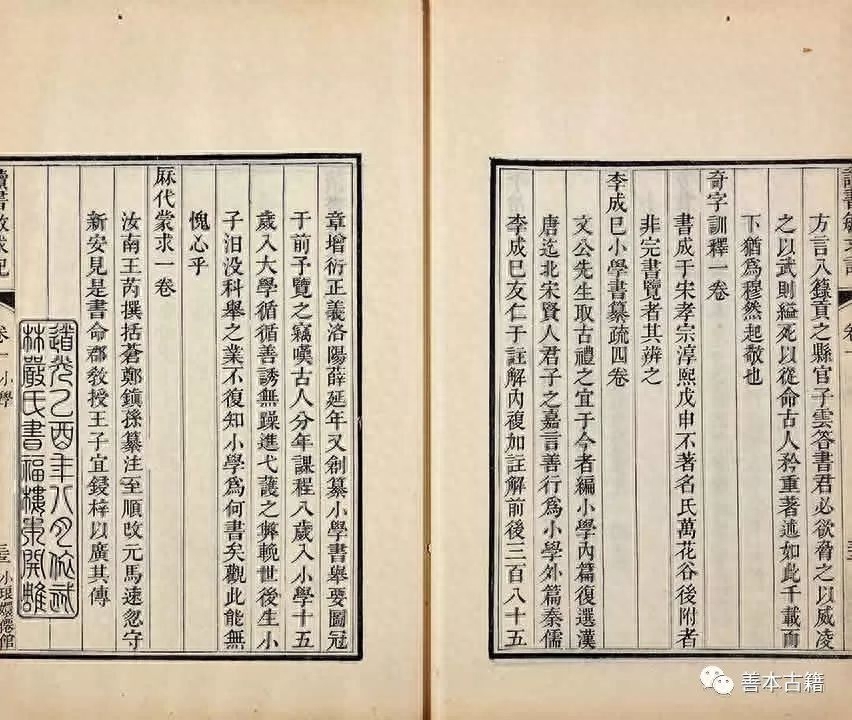 讀書敏求記
卷一
方言入籙貢之縣官子雲答書君必欲脅之以威凌
之以武則縊死以從命古人矜重著述如此千載而
下猶爲穆然起敬也
奇字訓釋一卷
書成于宋孝宗淳熙戊申不著名氏萬花谷後附者
非完書覽者其辨之
李成巳小學書纂疏四卷
文公先生取古禮之宜于今者編小學內篇復選漢
唐迄北宋賢人君子之嘉言善行爲小學外篇秦儒
李成巳友仁于註解內複加註解前後三百八十五
章增衍正義洛陽薛延年又創纂小學書舉要圖冠
于前予覽之竊嘆古人分年課程八歲入小學十五
歲入大學循循善誘無躁進弋蒦之弊輓世後生小
子汨没科舉之業不復知小學爲何書矣觀此能無
愧心乎
厤代蒙求一卷
汝南王芮撰括蒼鄭鎭孫纂注至順改元馬速忽守
新安見是書命郡教授王子宜鋟梓以廣其傳
道光乙酉年八月依武
林嚴氏書福樓本開雕
讀書敏求記
卷一 小學
小琅嬛僊館
善本古籍